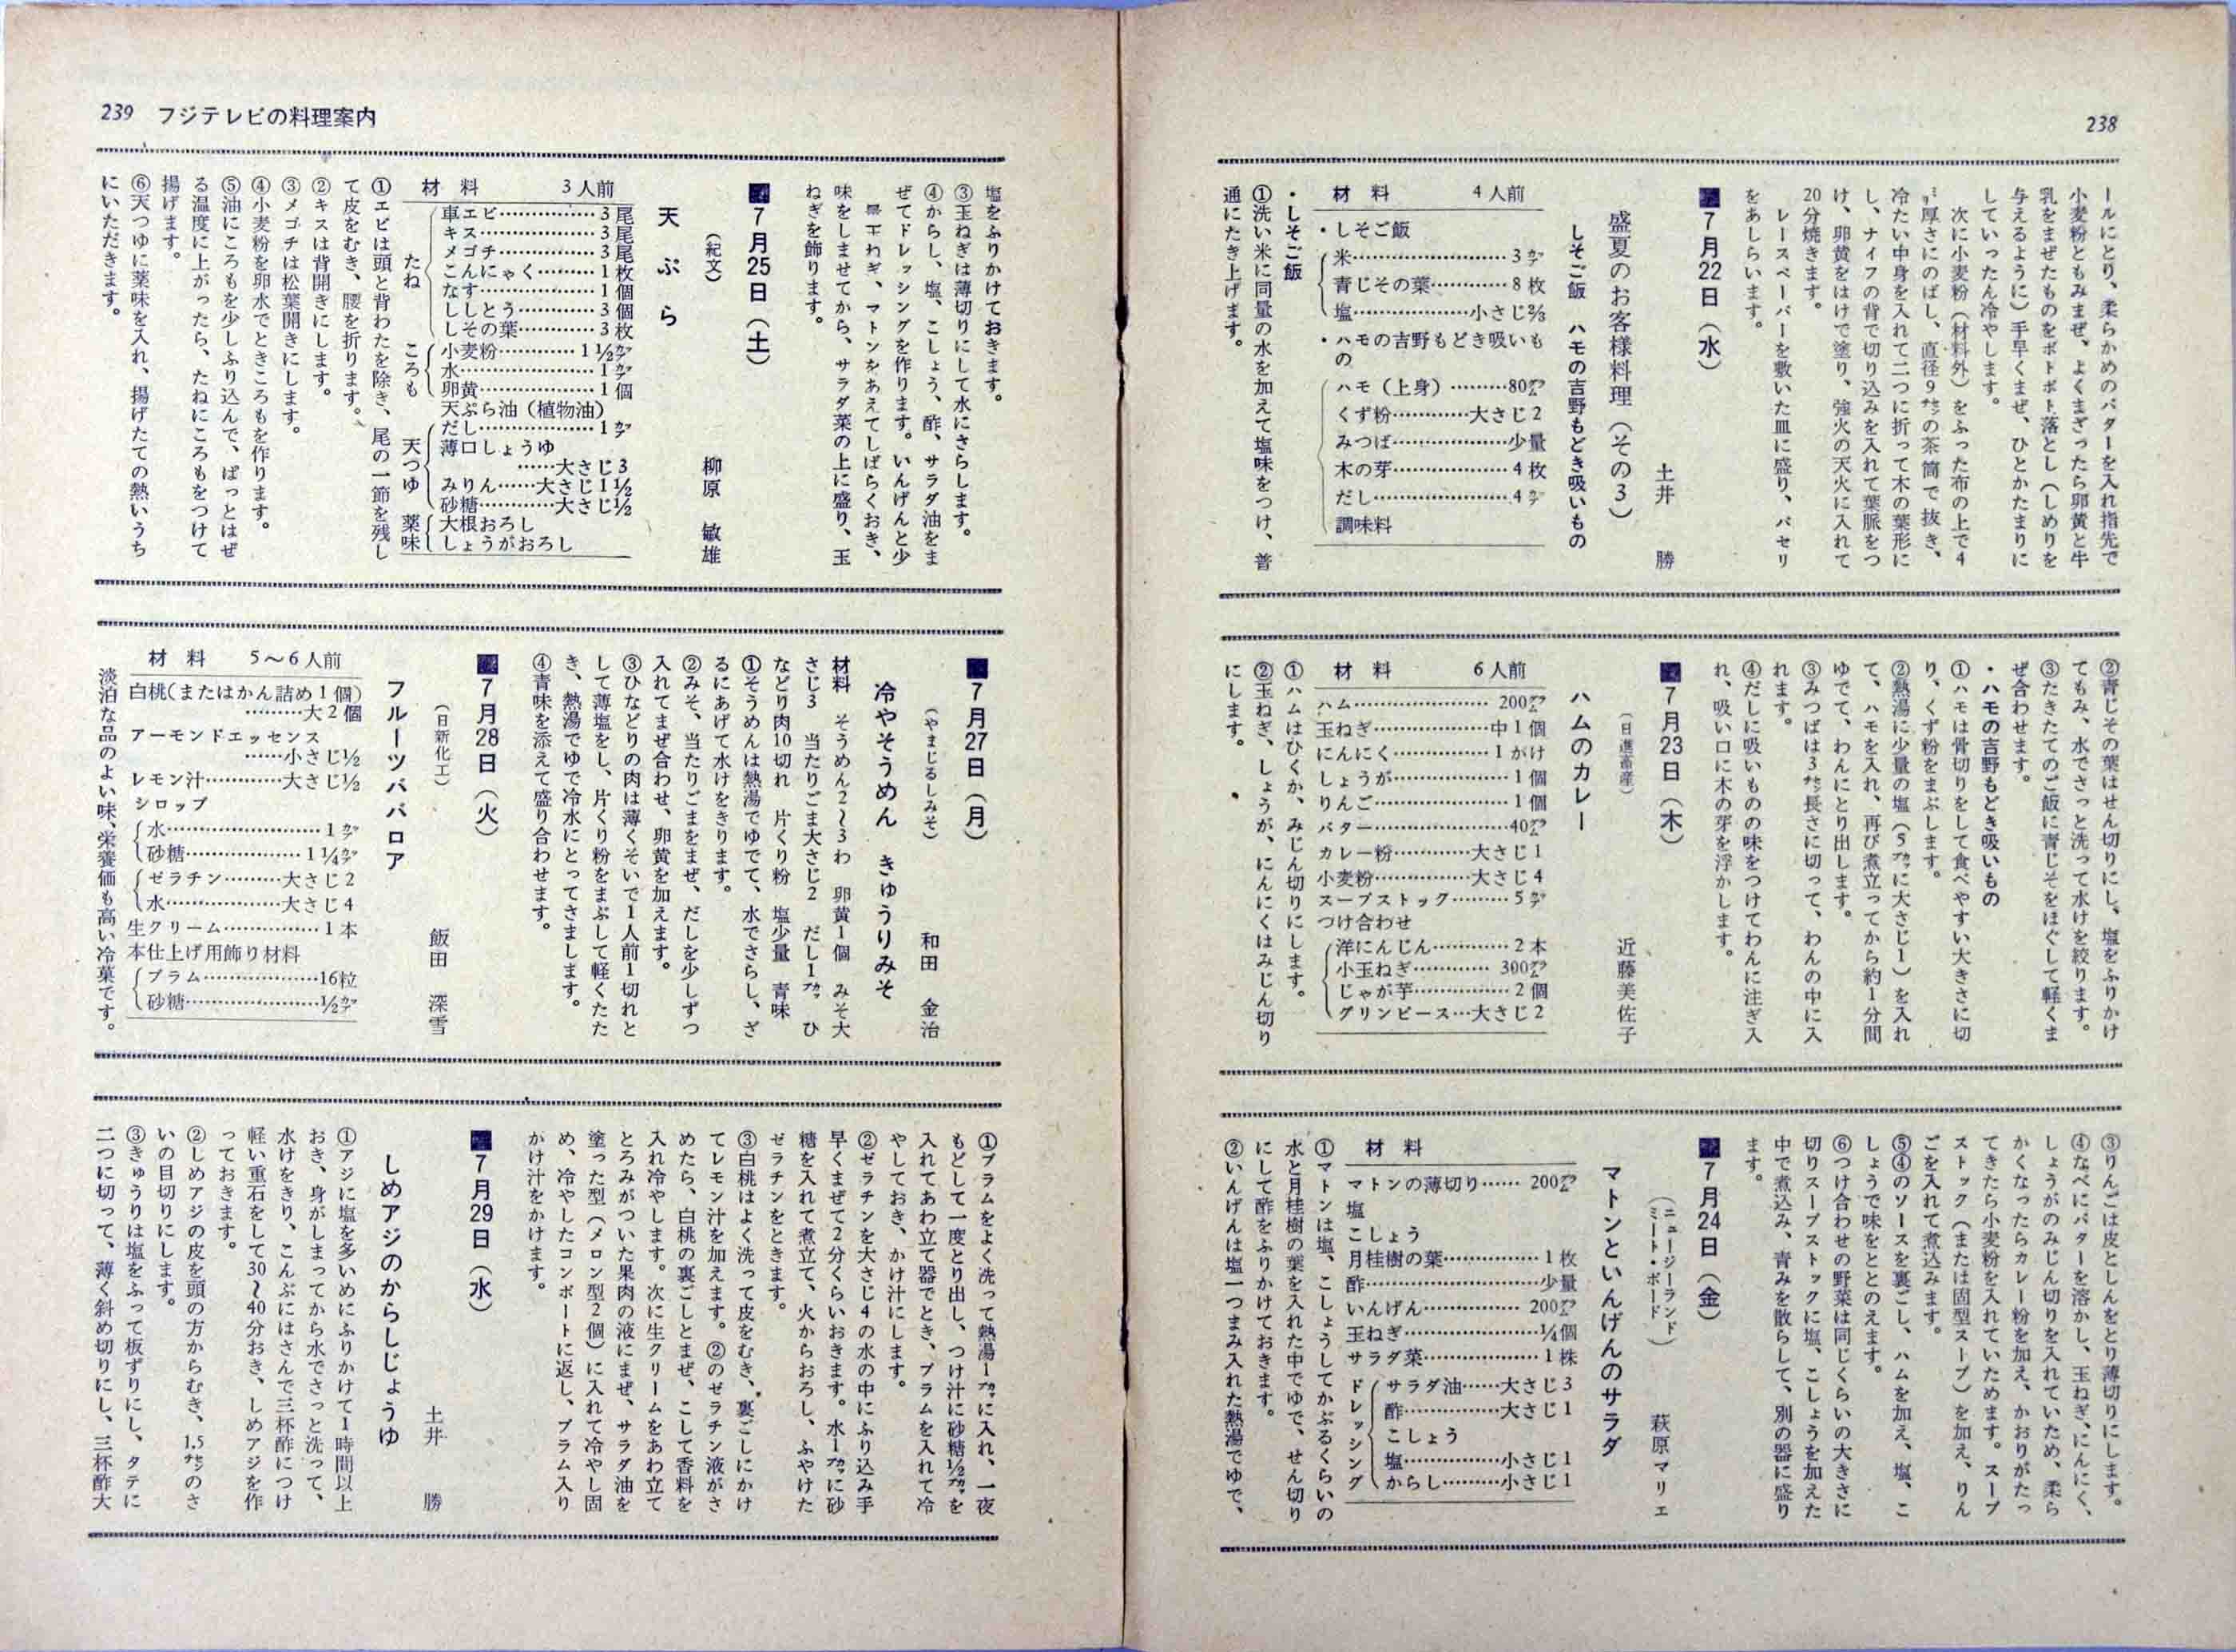 238
ールにとり、柔らかめのバターを入れ指先で
小麦粉ともみまぜ、よくまざったら卵黄と牛
乳をまぜたものをボトボト落とし（しめりを
与えるように）手早くまぜ、ひとかたまりに
していったん冷やします。
次に小麦粉（材料外）をふった布の上で4
㍉厚さにのばし、直径9㌢の茶筒で抜き、
冷たい中身を入れて二つに折って木の葉形に
し、ナイフの背で切り込みを入れて葉脈をつ
け、卵黄をはけで塗り、強火の天火に入れて
20分焼きます。
レースペーパーを敷いた皿に盛り、パセリ
をあしらいます。
7月22日（水）
土井 勝
盛夏のお客様料理（その3）
しそご飯 ハモの吉野もどき吸いもの
材料 4人前
・しそご飯
米……………3㌍
青じその葉…………8枚
塩……………小さじ⅔
・ハモの吉野もどき吸いも
の
ハモ（上身）………80㌘
くず粉…………大さじ2
みつば……………少量
木の芽……………4枚
だし……………4㌍
調味料
・しそご飯
①洗い米に同量の水を加えて塩味をつけ、普
通にたき上げます。
②青じその葉はせん切りにし、塩をふりかけ
てもみ、水でさっと洗って水けを絞ります。
③たきたてのご飯に青じそをほぐして軽くま
ぜ合わせます。
・ハモの吉野もどき吸いもの
①ハモは骨切りをして食べやすい大きさに切
り、くず粉をまぶします。
②熱湯に少量の塩（5㌍に大さじ1）を入れ
て、ハモを入れ、再び煮立ってから約1分間
ゆでて、わんにとり出します。
③みつばは3㌢長さに切って、わんの中に入
れます。
④だしに吸いものの味をつけてわんに注ぎ入
れ、吸い口に木の芽を浮かします。
7月23日（木）
（日進畜産） 近藤美佐子
ハムのカレー
材料 6人前
ハム……………200㌘
玉ねぎ……………中1個
にんにく……………1かけ
しょうが……………1個
りんご……………1個
バター……………40㌘
カレー粉…………大さじ1
小麦粉……………大さじ4
スープストック………5㌍
つけ合わせ
洋にんじん…………2本
小玉ねぎ…………300㌘
じゃが芋……………2個
グリンピース…大さじ2
①ハムはひくか、みじん切りにします。
②玉ねぎ、しょうが、にんにくはみじん切り
にします。
③りんごは皮としんをとり薄切りにします。
④なべにバターを溶かし、玉ねぎ、にんにく、
しょうがのみじん切りを入れていため、柔ら
かくなったらカレー粉を加え、かおりがたっ
てきたら小麦粉を入れていためます。スープ
ストック（または固型スープ）を加え、りん
ごを入れて煮込みます。
⑤④のソースを裏ごし、ハムを加え、塩、こ
しょうで味をととのえます。
⑥つけ合わせの野菜は同じくらいの大きさに
切りスープストックに塩、こしょうを加えた
中で煮込み、青みを散らして、別の器に盛り
ます。
7月24日（金）
（ニュージーランド
ミート・ボード） 萩原マリエ
マトンといんげんのサラダ
材料
マトンの薄切り……200㌘
塩
こしょう
月桂樹の葉……………1枚
酢……………少量
いんげん……………200㌘
玉ねぎ……………¼個
サラダ菜……………1株
ドレッシング
サラダ油……大さじ3
酢……………大さじ1
こしょう
塩……………小さじ1
からし………小さじ1
①マトンは塩、こしょうしてかぶるくらいの
水と月桂樹の葉を入れた中でゆで、せん切り
にして酢をふりかけておきます。
②いんげんは塩一つまみ入れた熱湯でゆで、
239 フジテレビの料理案内
塩をふりかけておきます。
③玉ねぎは薄切りにして水にさらします。
④からし、塩、こしょう、酢、サラダ油をま
ぜてドレッシングを作ります。いんげんと少
ねぎ、マトンをあえてしばらくおき、
味をしませてから、サラダ菜の上に盛り、玉
ねぎを飾ります。
7月25日（土）
（紀文） 柳原 敏雄
天ぷら
材料 3人前
たね
車エビ……………3尾
キス……………3尾
メゴチ……………3尾
こんにゃく…………1枚
なす……………1個
ししとう……………3個
しその葉……………3枚
ころも
小麦粉…………1½㌍
水……………1㌍
卵黄……………1個
天ぷら油（植物油）
天つゆ
だし……………1㌍
薄口しょうゆ
……大さじ3
みりん……大さじ1½
砂糖…………大さじ½
薬味
大根おろし
しょうがおろし
①エビは頭と背わたを除き、尾の一節を残し
て皮をむき、腰を折ります。
②キスは背開きにします。
③メゴチは松葉開きにします。
④小麦粉を卵水でときころもを作ります。
⑤油にころもを少しふり込んで、ぱっとはぜ
る温度に上がったら、たねにころもをつけて
揚げます。
⑥天つゆに薬味を入れ、揚げたての熱いうち
にいただきます。
7月27日（月）
（やまじるしみそ） 和田 金治
冷やそうめん きゅうりみそ
材料 そうめん2〜3わ 卵黄1個 みそ大
さじ3 当たりごま大さじ2 だし1㌍ ひ
などり肉10切れ 片くり粉 塩少量 青味
①そうめんは熱湯でゆでて、水でさらし、ざ
るにあげて水けをきります。
②みそ、当たりごまをまぜ、だしを少しずつ
入れてまぜ合わせ、卵黄を加えます。
③ひなどりの肉は薄くそいで1人前1切れと
して薄塩をし、片くり粉をまぶして軽くたた
き、熱湯でゆで冷水にとってさまします。
④青味を添えて盛り合わせます。
7月28日（火）
（日新化工） 飯田 深雪
フルーツババロア
材料 5〜6人前
白桃（またはかん詰め1個）
………大2個
アーモンドエッセンス
……小さじ½
レモン汁…………大さじ½
シロップ
水……………1㌍
砂糖……………1¼㌍
ゼラチン………大さじ2
水……………大さじ4
生クリーム……………1本
本仕上げ用飾り材料
プラム……………16粒
砂糖……………½㌍
淡泊な品のよい味、栄養価も高い冷菓です。
①プラムをよく洗って熱湯1㌍に入れ、一夜
もどして一度とり出し、つけ汁に砂糖½㌍を
入れてあわ立て器でとき、プラムを入れて冷
やしておき、かけ汁にします。
②ゼラチンを大さじ4の水の中にふり込み手
早くまぜて2分くらいおきます。水1㌍に砂
糖を入れて煮立て、火からおろし、ふやけた
ゼラチンをときます。
③白桃はよく洗って皮をむき、裏ごしにかけ
てレモン汁を加えます。②のゼラチン液がさ
めたら、白桃の裏ごしとまぜ、こして香料を
入れ冷やします。次に生クリームをあわ立て
とろみがついた果肉の液にまぜ、サラダ油を
塗った型（メロン型2個）に入れて冷やし固
め、冷やしたコンポートに返し、プラム入り
かけ汁をかけます。
7月29日（水）
土井 勝
しめアジのからしじょうゆ
①アジに塩を多いめにふりかけて1時間以上
おき、身がしまってから水でさっと洗って、
水けをきり、こんぶにはさんで三杯酢につけ
軽い重石をして30〜40分おき、しめアジを作
っておきます。
②しめアジの皮を頭の方からむき、1.5㌢のさ
いの目切りにします。
③きゅうりは塩をふって板ずりにし、タテに
二つに切って、薄く斜め切りにし、三杯酢大